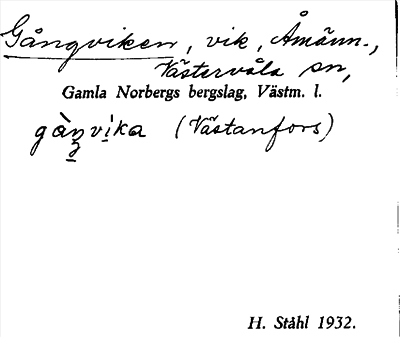 Gångviken, vik, Åmänn.,
Västervåla sn,
Gamla Norbergs bergslag, Västm. l.
gàŋvi̲ka (Västanfors)
H. Ståhl 1932.